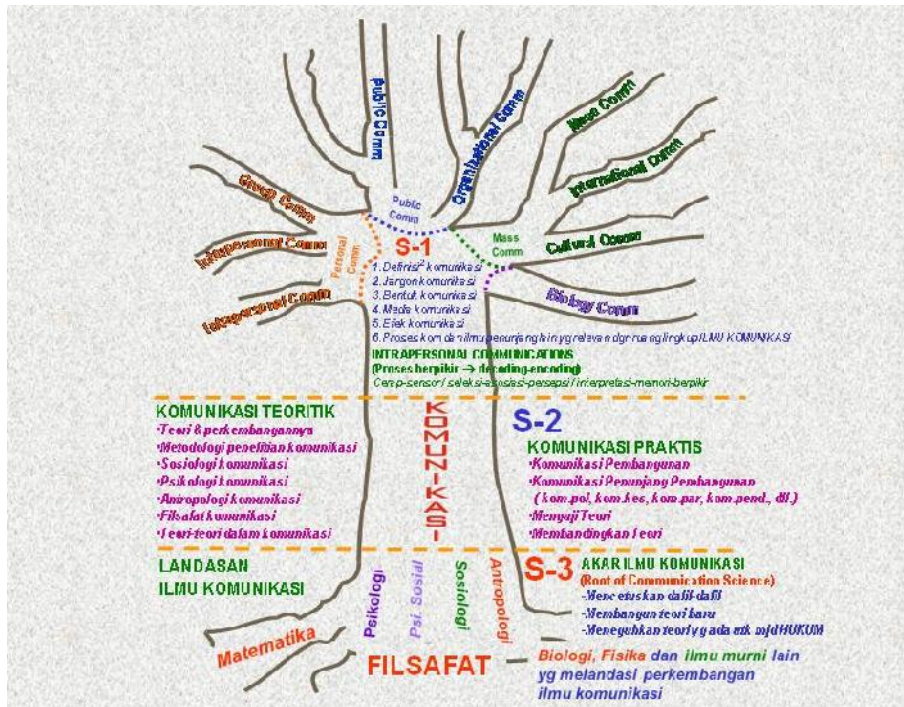 Public Comm
Organizational Comm
Mass Comm
International Comm
Cultural Comm
Biology Comm
Group Comm
Interpersonal Comm
Intrapersonal Comm
Public
Comm
Mass
Comm
Personal
Comm
S-1
1. Definisi² komunikasi
2. Jargon komunikasi
3. Bentuk komunikasi
4. Media komunikasi
5. Efek komunikasi
6. Proses kom dan ilmu penunjang lain yg relevan dgn ruang lingkup ILMU KOMUNIKASI
INTRAPERSONAL COMMUNICATIONS
(Proses berpikir → decoding-encoding)
Cerap-sensor/ seleksi-asosiasi-persepsi / interpretasi-memori-berpikir
KOMUNIKASI TEORITIK
•Teori & perkembangannya
•Metodologi penelitian komunikasi
•Sosiologi komunikasi
•Psikologi komunikasi
•Antropologi komunikasi
•Filsafat komunikasi
•Teori-teori dalam komunikasi
KOMUNIKASI
S-2
KOMUNIKASI PRAKTIS
•Komunikasi Pembangunan
•Komunikasi Penunjang Pembangunan
( kom.pol, kom.kes, kom.par, kom.pend., dll.)
•Menguji Teori
•Membandingkan Teori
LANDASAN
ILMU KOMUNIKASI
Psikologi
Psi. Sosial
Sosiologi
Antropologi
S-3
AKAR ILMU KOMUNIKASI
(Root of Communication Science)
-Mencetuskan dalil-dalil
-Membangun teori baru
-Meneguhkan teori yg ada utk mjd HUKUM
Matematika
FILSAFAT
Biologi, Fisika dan ilmu murni lain
yg melandasi perkembangan
ilmu komunikasi